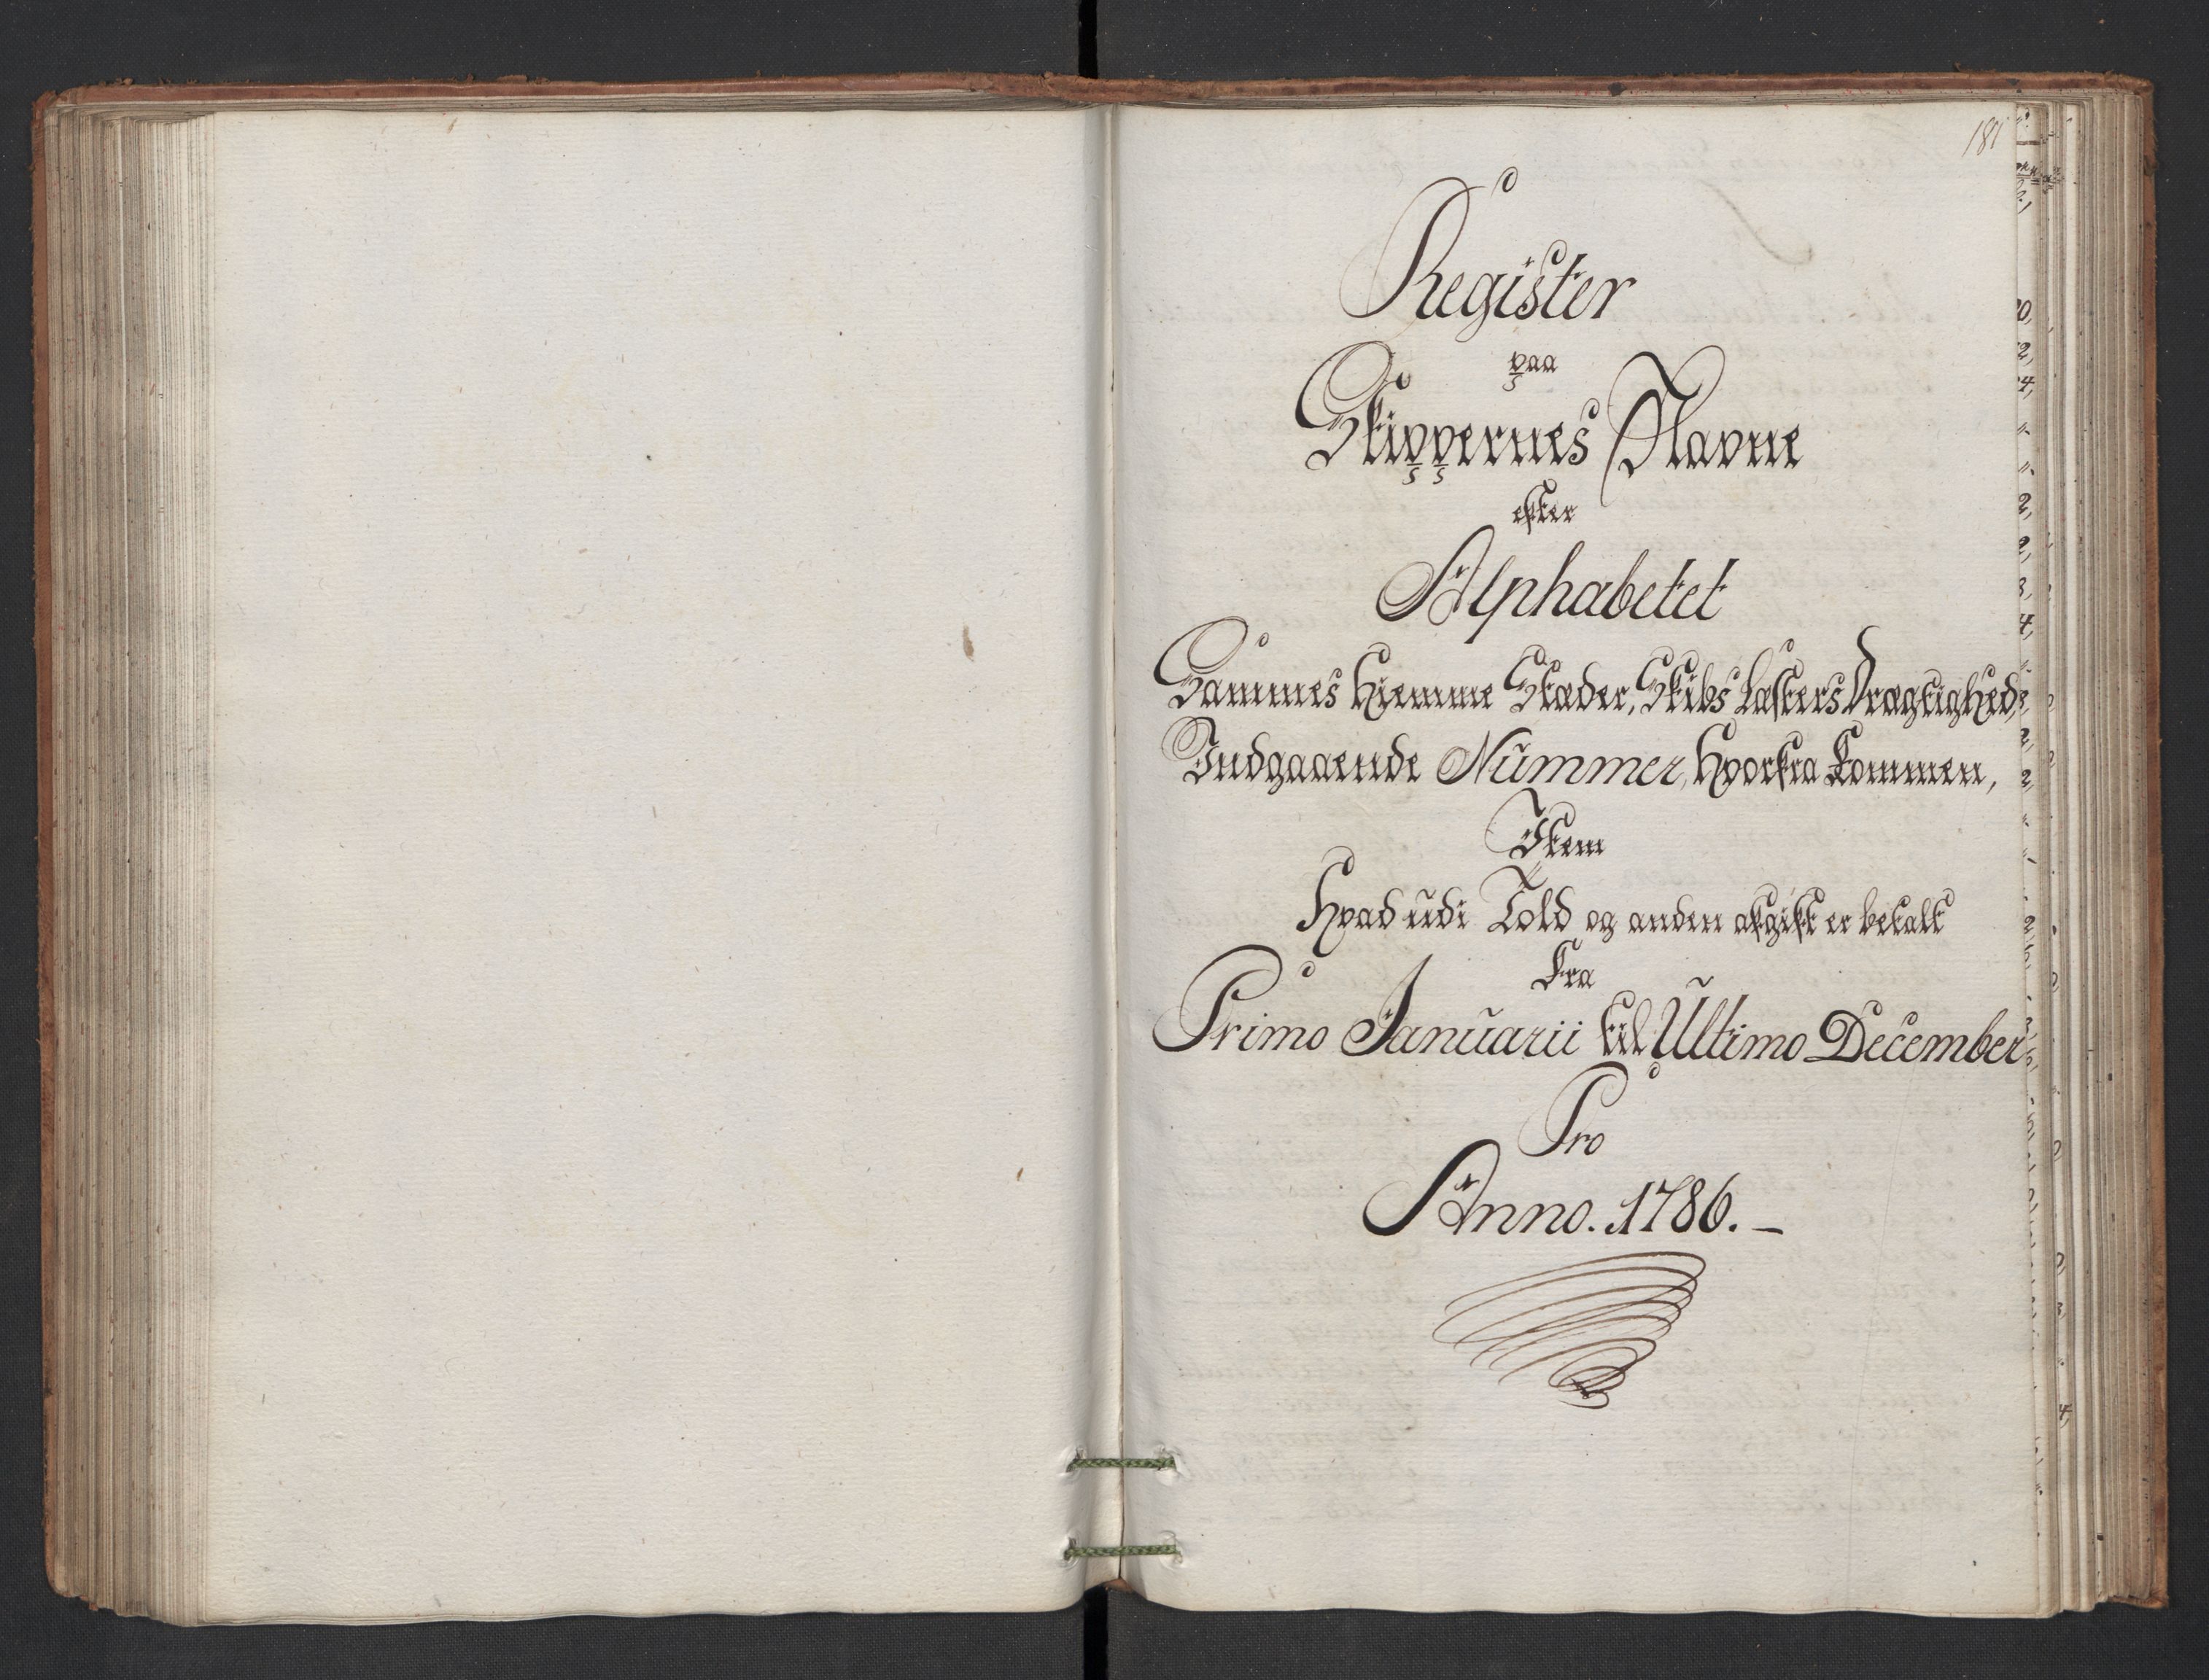 181
Register
paa
Skippernes Navne
efter
Alphabetet
Sammes Hiemme Stæder, Skibs Læsters Drægtighed,
Indgaaende Nummer, Hvorfra Kommen,
Item
Hvad udi Told og anden afgift er betalt
Fra
Primo Januarii til Ultimo December
Pro
Anno. 1786. –